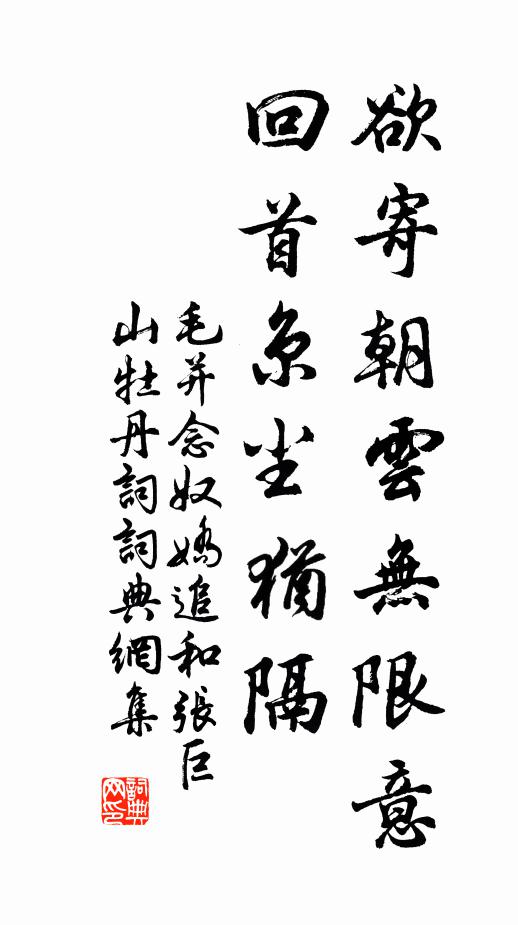 欲寄朝雲無限意
回首京尘猶隔
毛并念奴嬌追和張巨
山牡丹詞詞典網集
詞典
网印